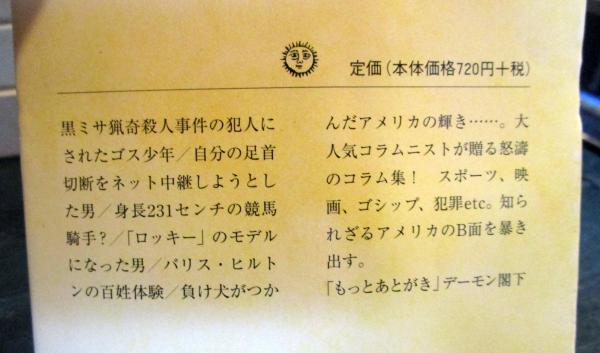 定価(本体価格720円+税)
黒ミサ猟奇殺人事件の犯人に
されたゴス少年/自分の足首
切断をネット中継しようとし
た男/身長231センチの競馬
騎手?/「ロッキー」のモデル
になった男/パリス・ヒルト
ンの百姓体験/負け犬がつか
んだアメリカの輝き……。大
人気コラムニストが贈る怒濤
のコラム集! スポーツ、映
画、ゴシップ、犯罪etc。知ら
れざるアメリカのB面を暴き
出す。
「もっとあとがき」デーモン閣下